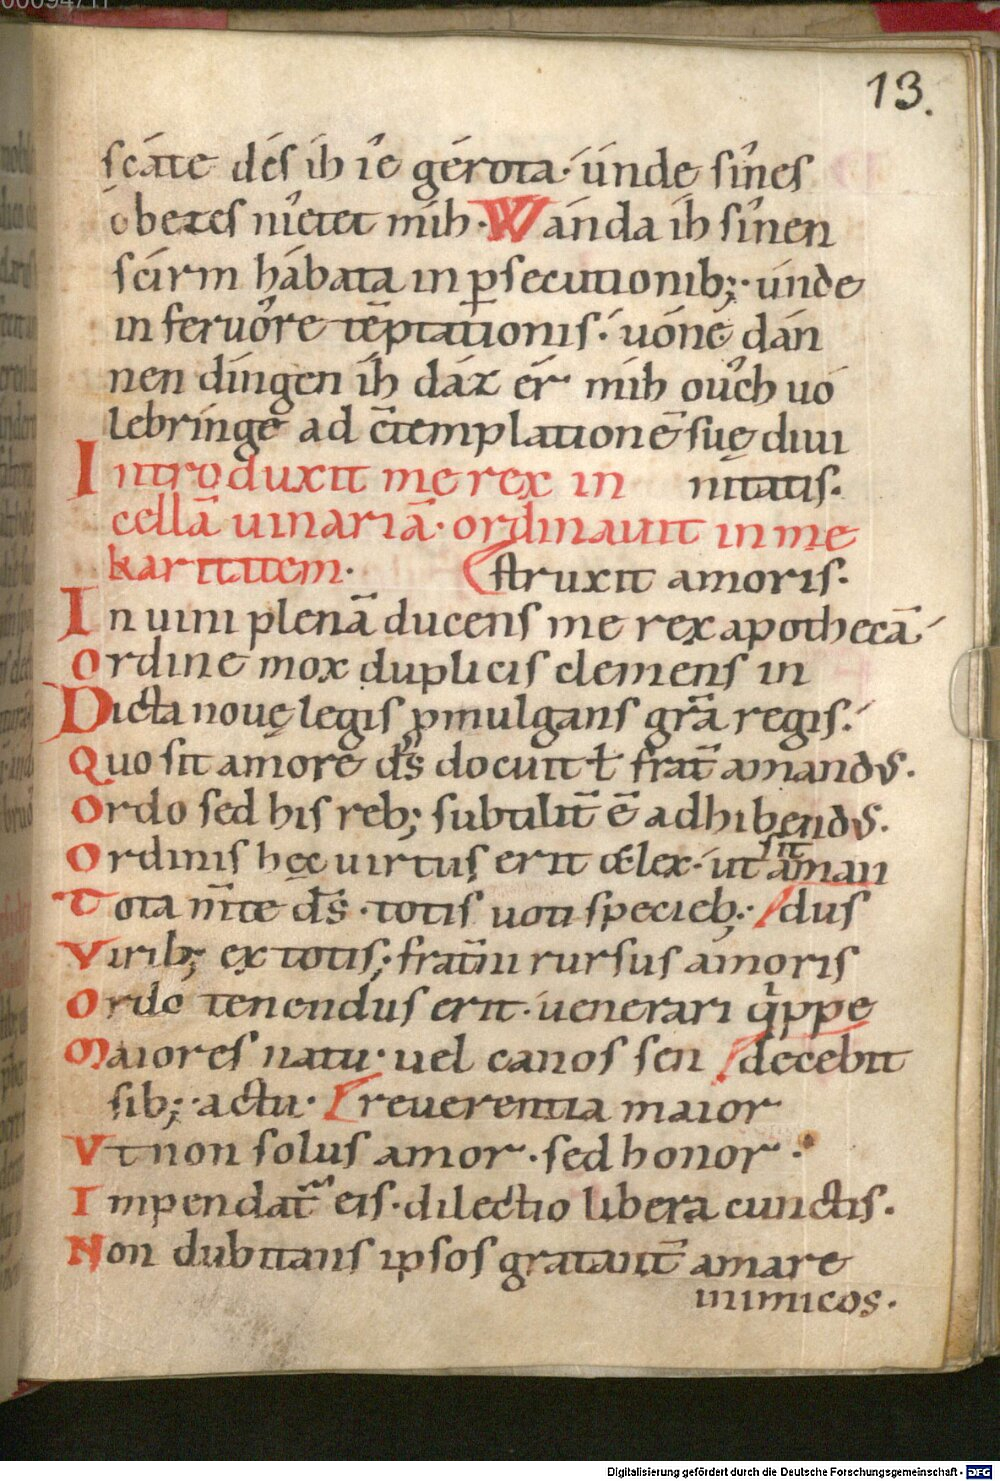 00094711
13.
scáte dés ih íe gérota· únde sînes
obezes nîetet mih· Wánda ih sînen
scirm hábata in psecutionib;· únde
in feruôre tēptationis· uóne dán
nen díngen ih dáz ér mih oûch uó
lebrínge ad cōtemplationē suę diui
Introduxit me rex in nitatis.
cellā uinariā· ordinauit in me
karitatem· struxit amoris·
In uini plenā ducens me rex apothecā·
Ordine mox duplicis clemens in
Dicta nouę legis pmulgans grā regis·
Quo sit amore ds docuit ł frat amands·
Ordo sed his reb; subtilit ē adhibends·
Ordinis hęc uirtus erit & lex· ut sit aman
Tota m̄te ds· totis uoti specieb;· dus
Virib; ex totis; fratnu rursus amoris
Ordo tenendus erit· uenerari qippe
Maiores natu· uel canos sen decebit
sib;· actu· reuerentia maior
Vt non solus amor· sed honor·
Impendat eis· dilectio libera cunctis·
Non dubitans ipsos gratant amare
inimicos·
Digitalisierung gefördert durch die Deutsche Forschungsgemeinschaft - DFG